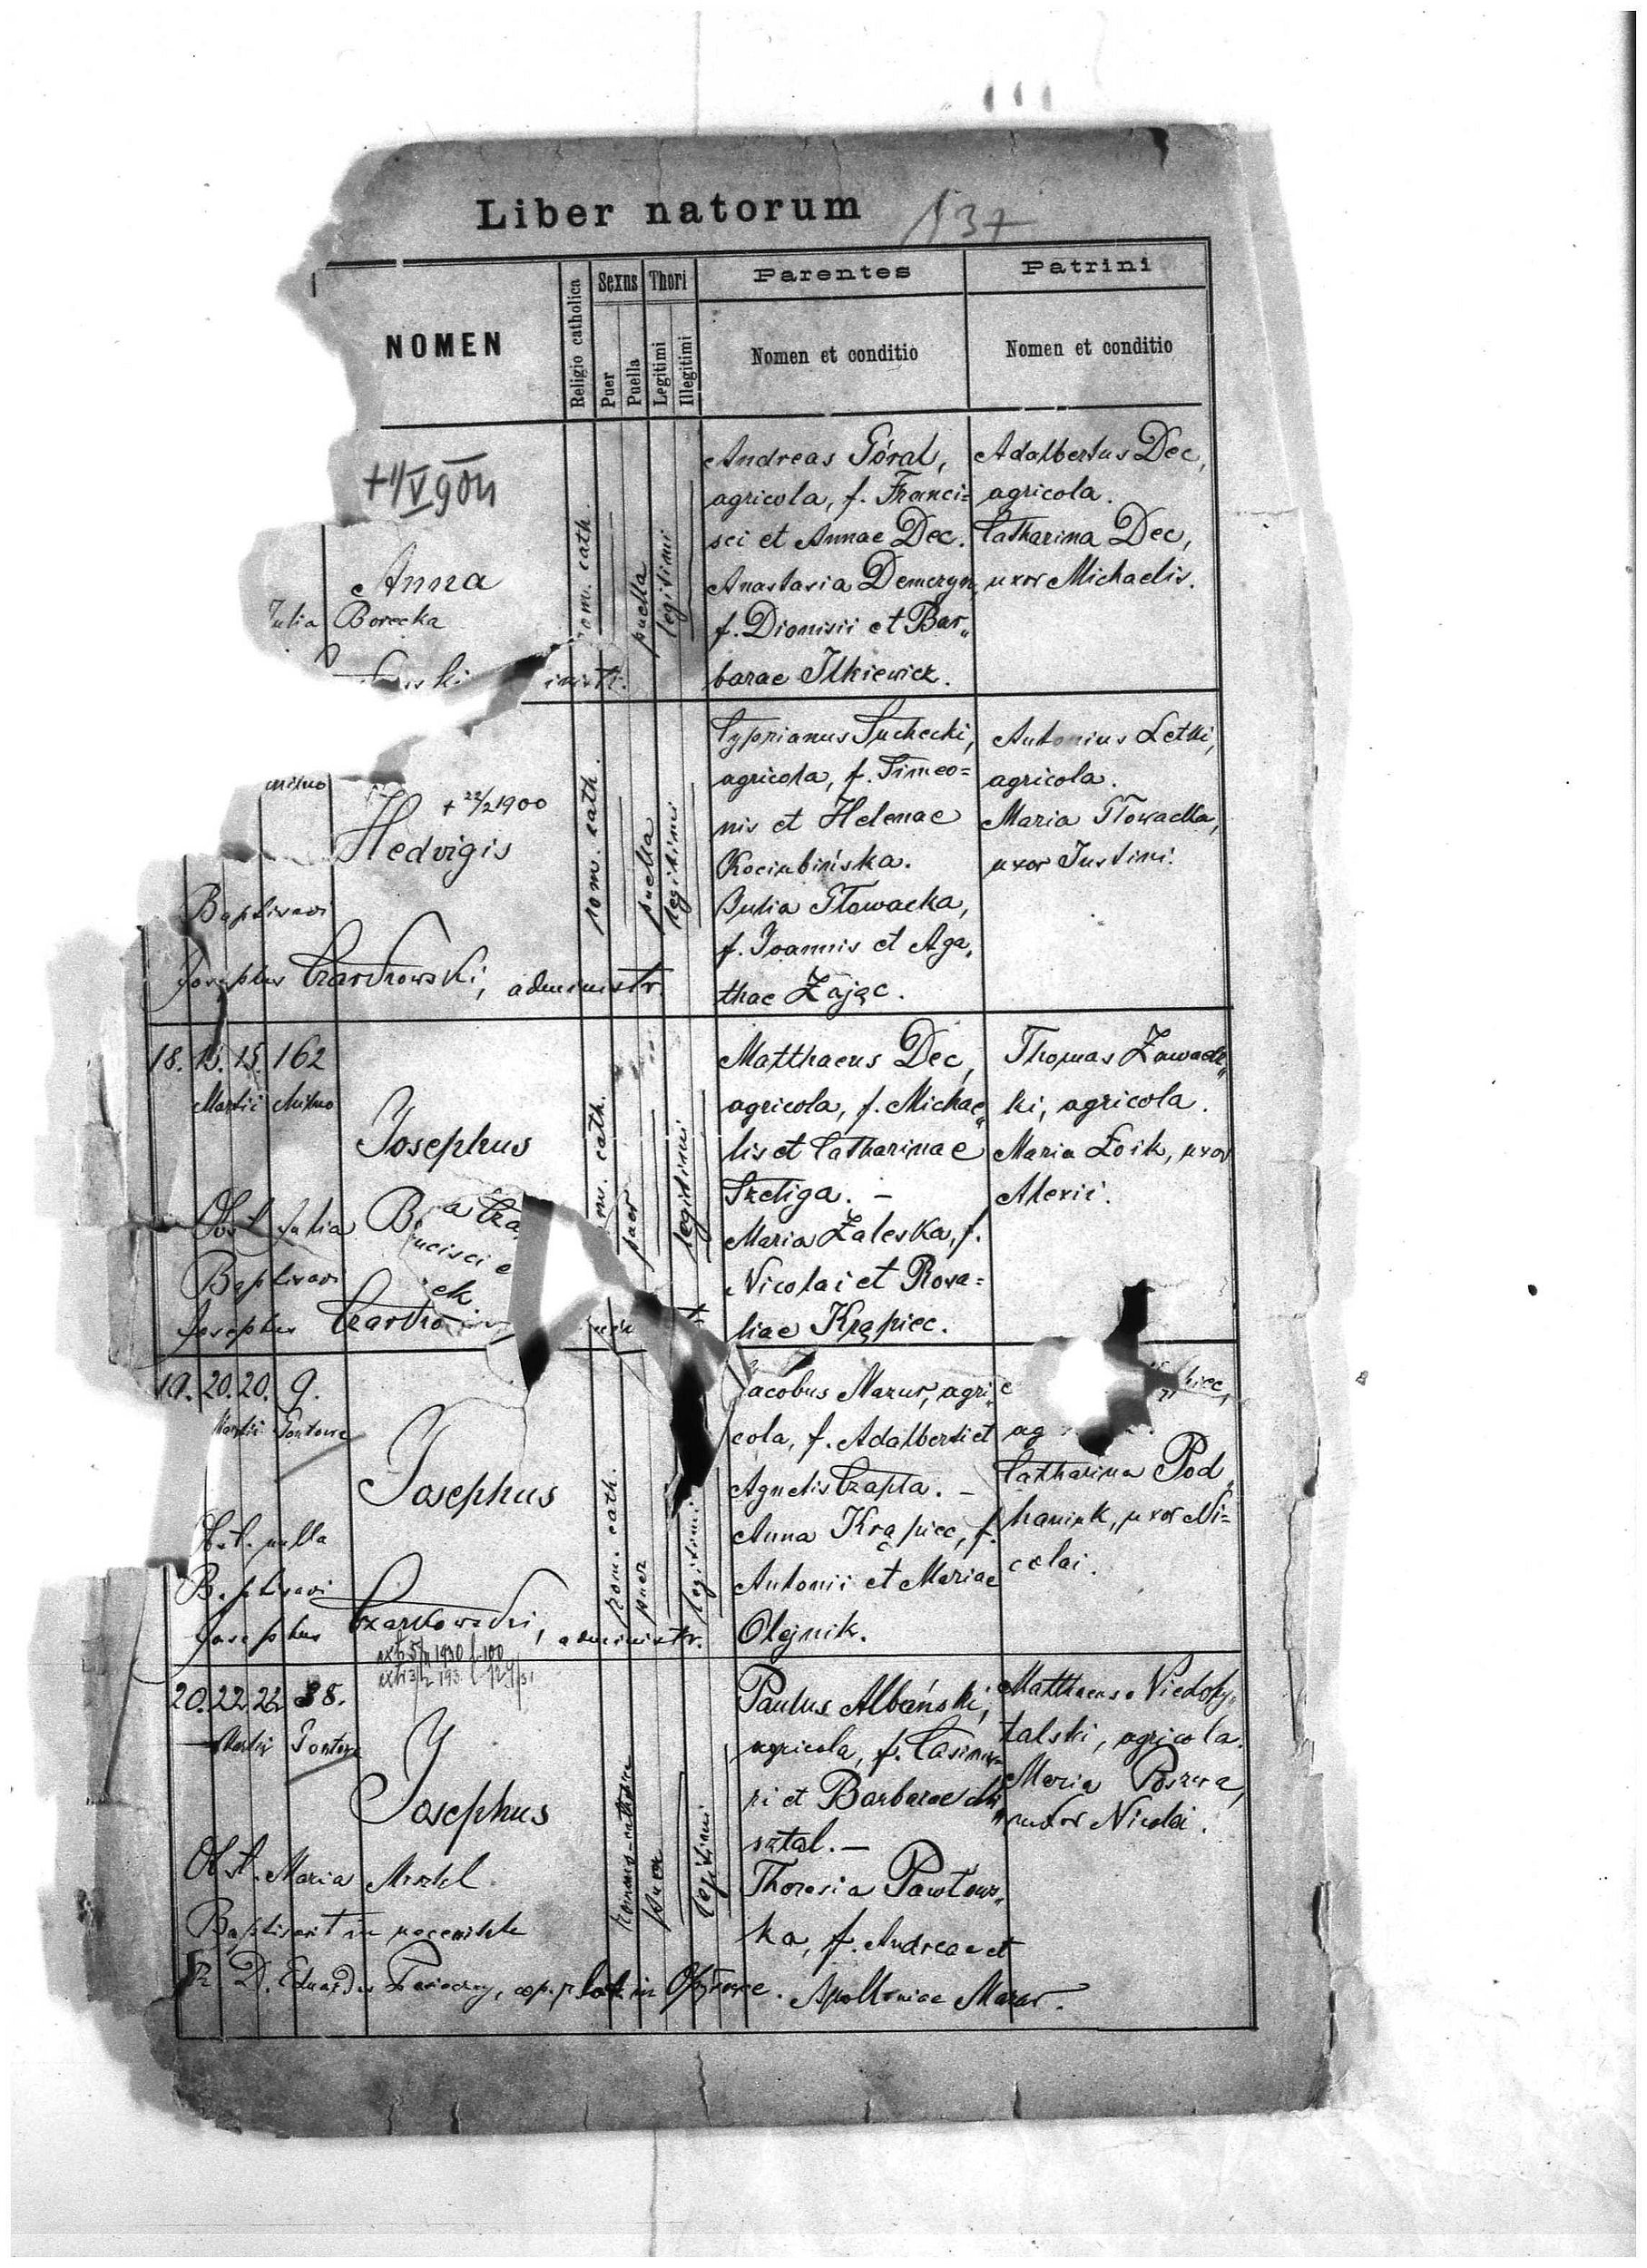 Liber natorum 137
NOMEN
Religio catholica
Sexus
Puer
Puella
Thori
Legitimi
Illegitimi
Parentes
Nomen et conditio
Patrini
Nomen et conditio
Anna
Julia Borecka
puella
legitimi
Andreas Góral,
agricola, f. Franci=
sci et Annae Dec.
Anastasia Demczyn,
f. Dionisii et Bar„
barae Ilkiewicz.
Adalbertus Dec,
agricola.
Catharina Dec,
uxor Michaelis.
+ 22/2 1900
Hedvigis
Baptisavi
Josephus Czartkowski, administr.
rom. cath.
puella
legitimi
Cyprianus Suchecki,
agricola, f. Simeo=
nis et Helenae
Kociubińska.
Julia Głowacka,
f. Joannis et Aga„
thae Zając.
Antonius Letki,
agricola.
Maria Głowacka,
uxor Justini.
18. 15. 15. 162
Martii Milno
Josephus
Obst. Julia
Baptisavi
Josephus
cath.
puer
legitimi
Matthaeus Dec,
agricola, f. Michae„
lis et Catharinae
Szeliga. –
Maria Zaleska, f.
Nicolai et Rosa=
liae Krąpiec.
Thomas Zawadz„
ki, agricola.
Maria Łoik, uxor
Alexii.
19. 20. 20. 9.
Martii Gontowa
Josephus
Obst. nulla
Baptisavi
Josephus Czartkowski, administr.
rom. cath.
puer
legitimi
Jacobus Mazur, agri„
cola, f. Adalberti et
Agnetis Czapla. –
Anna Krąpiec, f.
Antonii et Mariae
Olejnik.
Catharina Pod„
haniuk, uxor Ni=
colai.
20. 22. 22. 38.
Martii Gontowa
Josephus
Obst. Maria
Baptisavit in necessitate
D. Eduardus
romano-catholica
puer
legitimi
Paulus Albański,
agricola, f. Casimi=
ri et Barbarae Mi„
sztal. –
Theresia Pawłows„
ka, f. Andreae et
Apolloniae Mazur.
Matthaeus Niedopy„
talski, agricola.
Maria
uxor Nicolai.